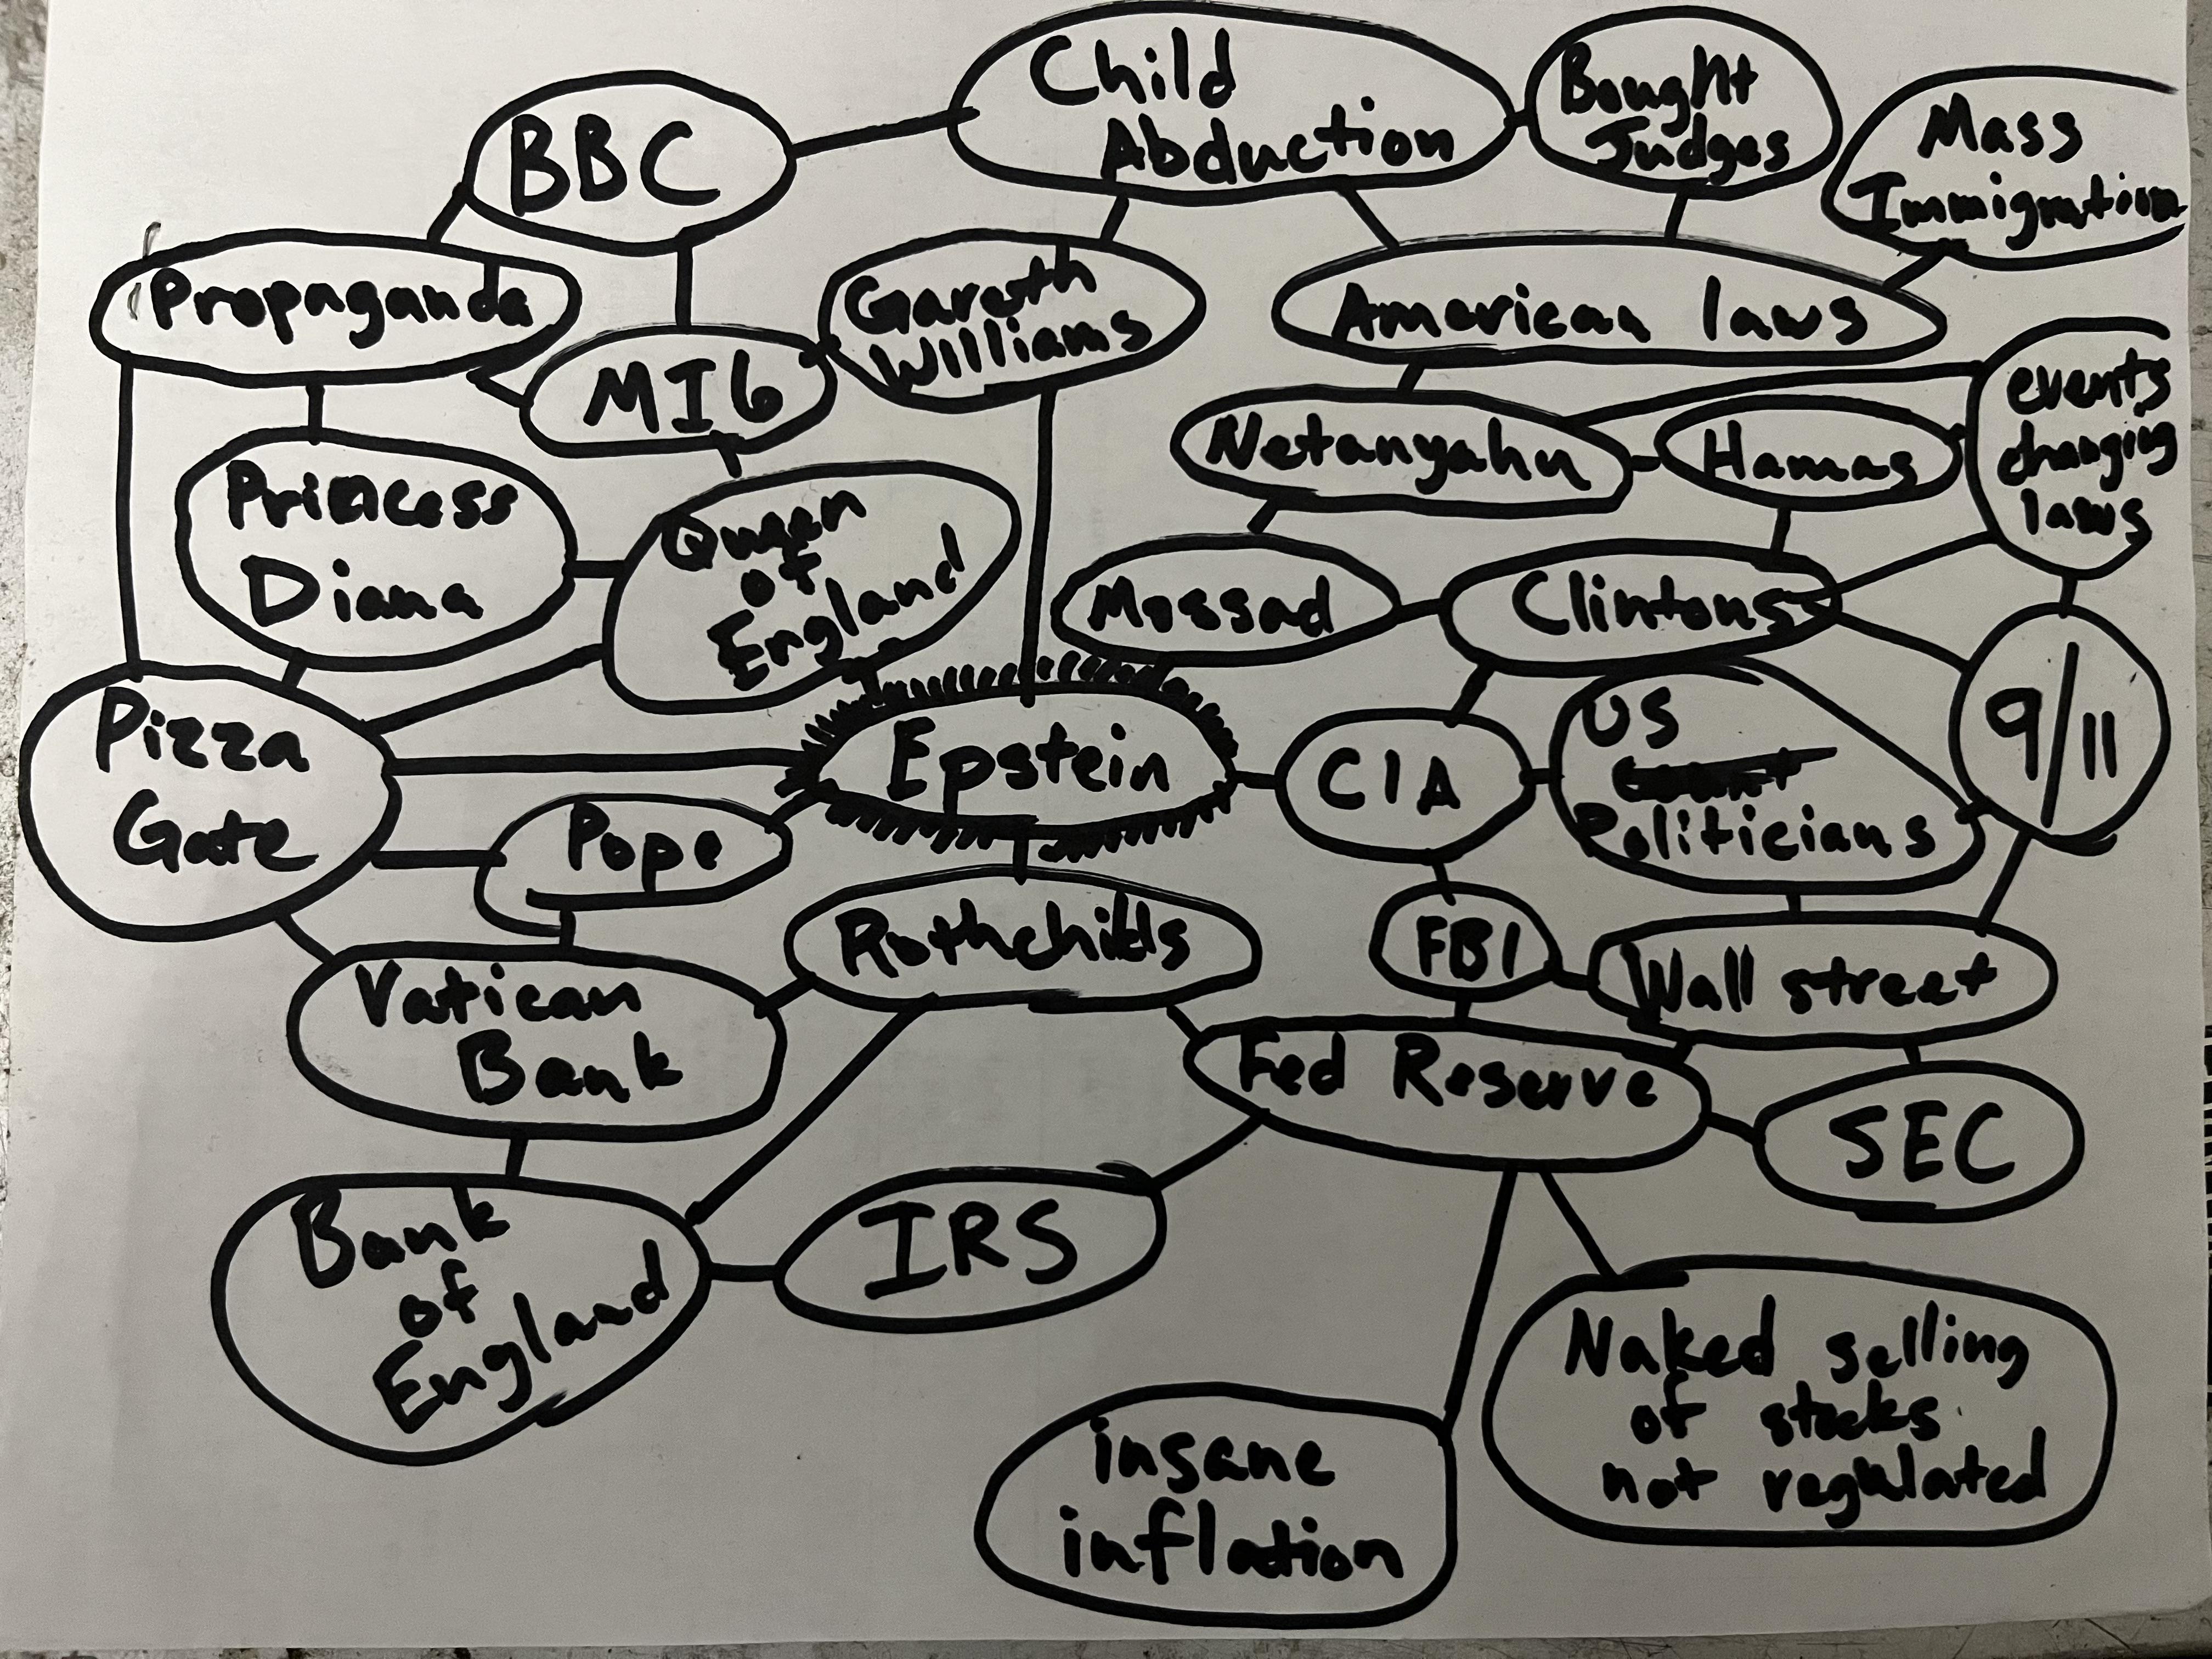 Child
Abduction
Bought
Judges
BBC
Mass
Immigration
Propaganda
Gareth
Williams
American laws
MI6
events
changing
laws
Netanyahu
Hamas
Princess
Diana
Queen
of
England
Mossad
Clintons
9/11
Pizza
Gate
Epstein
CIA
US
Politicians
Pope
Rothchilds
FBI
Wall street
Vatican
Bank
Fed Reserve
SEC
Bank
of
England
IRS
Naked selling
of stocks
not regulated
insane
inflation